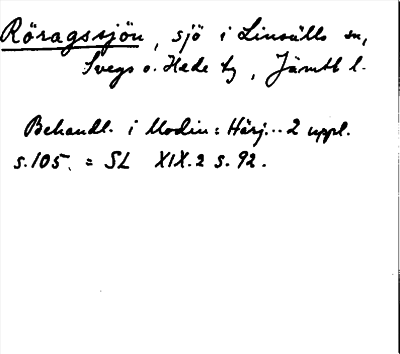 Röragssjön, sjö i Linsälls sn,
Svegs o. Hede tg, Jämtl l.
Behandl. i Modin: Härj... 2 uppl.
s. 105. = SL XIX.2 s. 92.